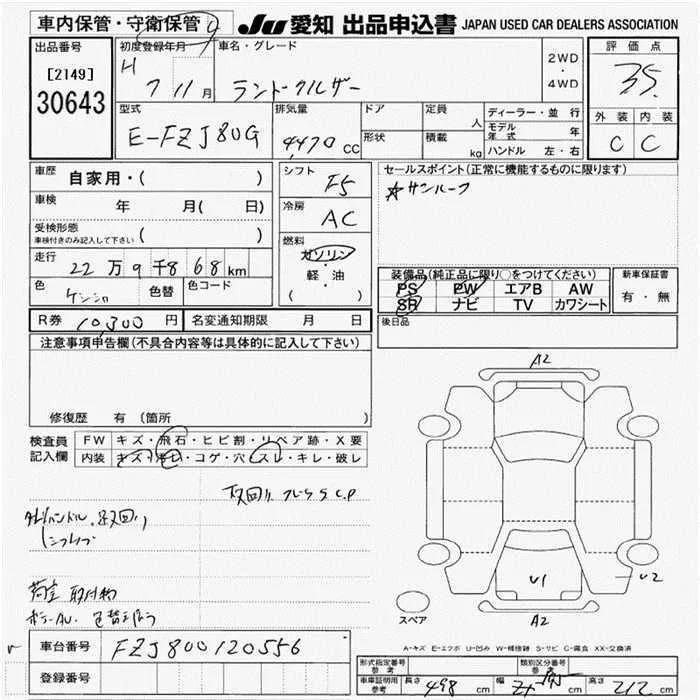 車内保管・守衛保管
JU 愛知 出品申込書 JAPAN USED CAR DEALERS ASSOCIATION
出品番号
[2149]
30643
初度登録年月
H 7 11 月
車名・グレード
ランドクルザー
2WD
・
4WD
評価点
3.5
外装 内装
C C
型式
E-FZJ80G
排気量
4,470 CC
ドア
形状
定員
人
積載
kg
ディーラー・並行
モデル年式 年
ハンドル 左・右
車歴
自家用・( )
車検
年 月( 日)
受検形態
車検付きのみ記入して下さい ( )
走行
22万9千868km
色
色替
色コード
シフト
F5
冷房
AC
燃料
ガソリン
・
軽・油
( )
セールスポイント(正常に機能するものに限ります)
☆サンルーフ
装備品(純正品に限り○をつけてください)
PS PW エアB AW
SR ナビ TV カワシート
新車保証書
有・無
後日品
R券 10,300 円
名変通知期限 月 日
注意事項申告欄(不具合内容等は具体的に記入して下さい)
修復歴 有(箇所 )
検査員
記入欄
FW キズ・飛石・ヒビ割・リペア跡・X要
内装 キズ・汚レ・コゲ・穴・スレ・キレ・破レ
下回り
荷室 取付物
A2
U1
U2
A2
スペア
A-キズ E-エクボ U-凹み W-補修跡 S-サビ C-腐食 XX-交換済
車台番号 FZJ800120556
登録番号
形式指定番号
参考
類別区分番号
参考
車庫証明用
参考
長さ 498 cm 幅 cm 高さ 212 cm